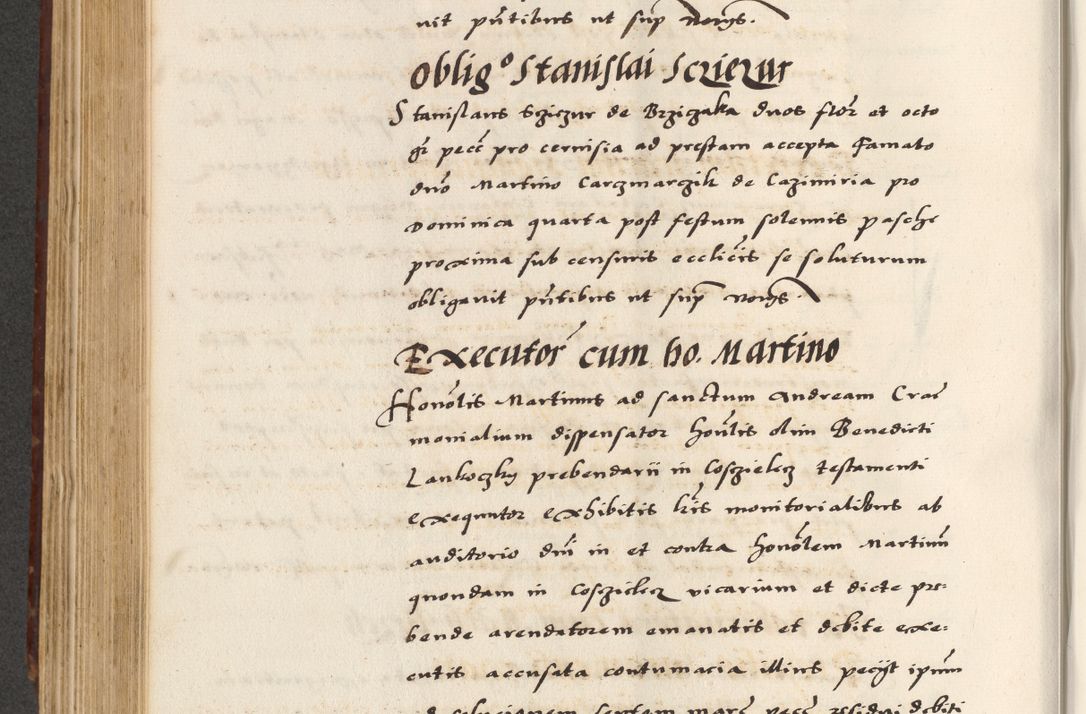 vit pñtibus ut supr Norys.
Oblig° Stanislai Sczierur
Stanislaus Sziczur de Brziczaka duos flor̃ et octo
gr̃ pecc̃ pro cervisia ad prestam accepta Famato
dño Martino Carczmarczik de Cazimiria pro
Dominica quarta post festum solennis pasche
proxima sub censuris eccliẽis se soluturum
obligavit pñtibus ut supr Norys.
Executor̃ cum ho. Martino
Honõlis Martinus ad sanctum Andream Crac̃
monialium dispensator honũlis olim Benedicti
Lankoczky prebendarii in Cosczielecz testamenti
exequutor exhibitis lr̃is monitorialibus ab
auditorio dñi in et contra honõlem Martinũ
quondam in Cosczielecz vicarium et dicte pre-
bende arendatorem emanatis et debite exe-
cutis accusata contumacia illius peciit ipsum
ad solucionem septem marc̃ pecc̃ residui debiti